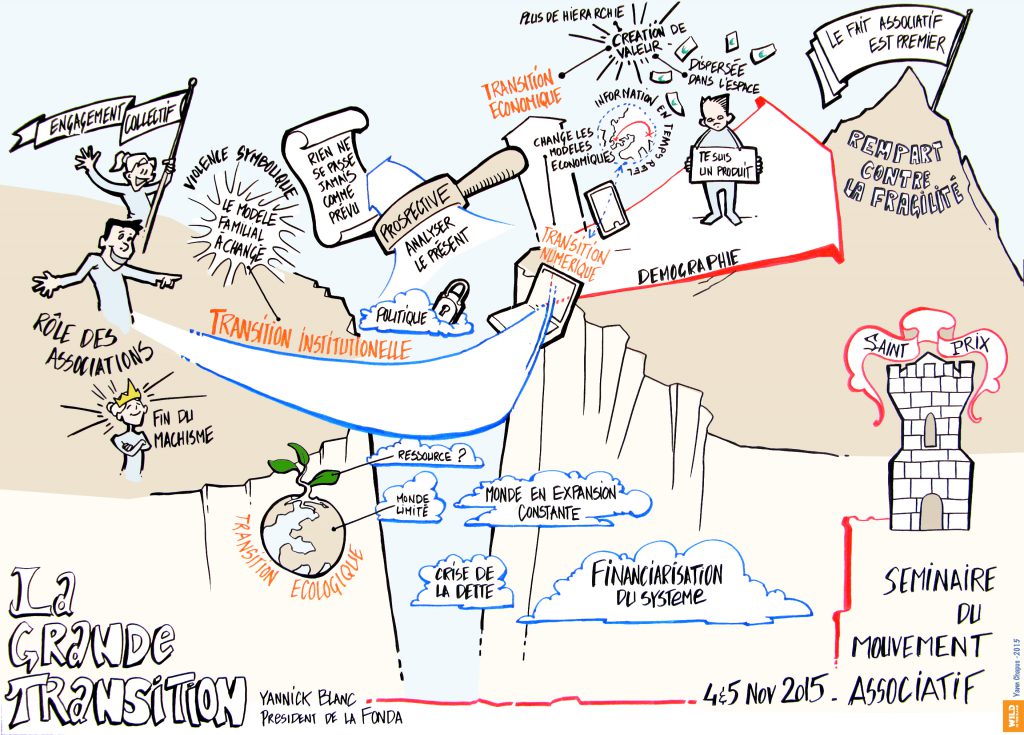 PLUS DE HIERARCHIE
CREATION DE
VALEUR
DISPERSÉE
DANS L'ESPACE
LE FAIT ASSOCIATIF
EST PREMIER
TRANSITION
ECONOMIQUE
ENGAGEMENT
COLLECTIF
VIOLENCE SYMBOLIQUE
LE MODELE
FAMILIAL
A CHANGÉ
RIEN NE
SE PASSE
JAMAIS
COMME
PRÉVU
PROSPECTIVE
ANALYSER
LE PRÉSENT
CHANGE LES
MODELES
ECONOMIQUES
INFORMATION EN TEMPS REEL
JE SUIS
UN PRODUIT
REMPART
CONTRE
LA FRAGILITÉ
TRANSITION
NUMERIQUE
DEMOGRAPHIE
POLITIQUE
TRANSITION INSTITUTIONELLE
RÔLE DES
ASSOCIATIONS
FIN DU
MACHISME
SAINT PRIX
RESSOURCE ?
MONDE
LIMITÉ
MONDE EN EXPANSION
CONSTANTE
TRANSITION ECOLOGIQUE
CRISE DE
LA DETTE
FINANCIARISATION
DU SYSTEME
SEMINAIRE
DU
MOUVEMENT
ASSOCIATIF
4&5 NOV 2015.
LA
GRANDE
TRANSITION
YANNICK BLANC
PRÉSIDENT DE LA FONDA
Yann Chapus - 2015
WILD